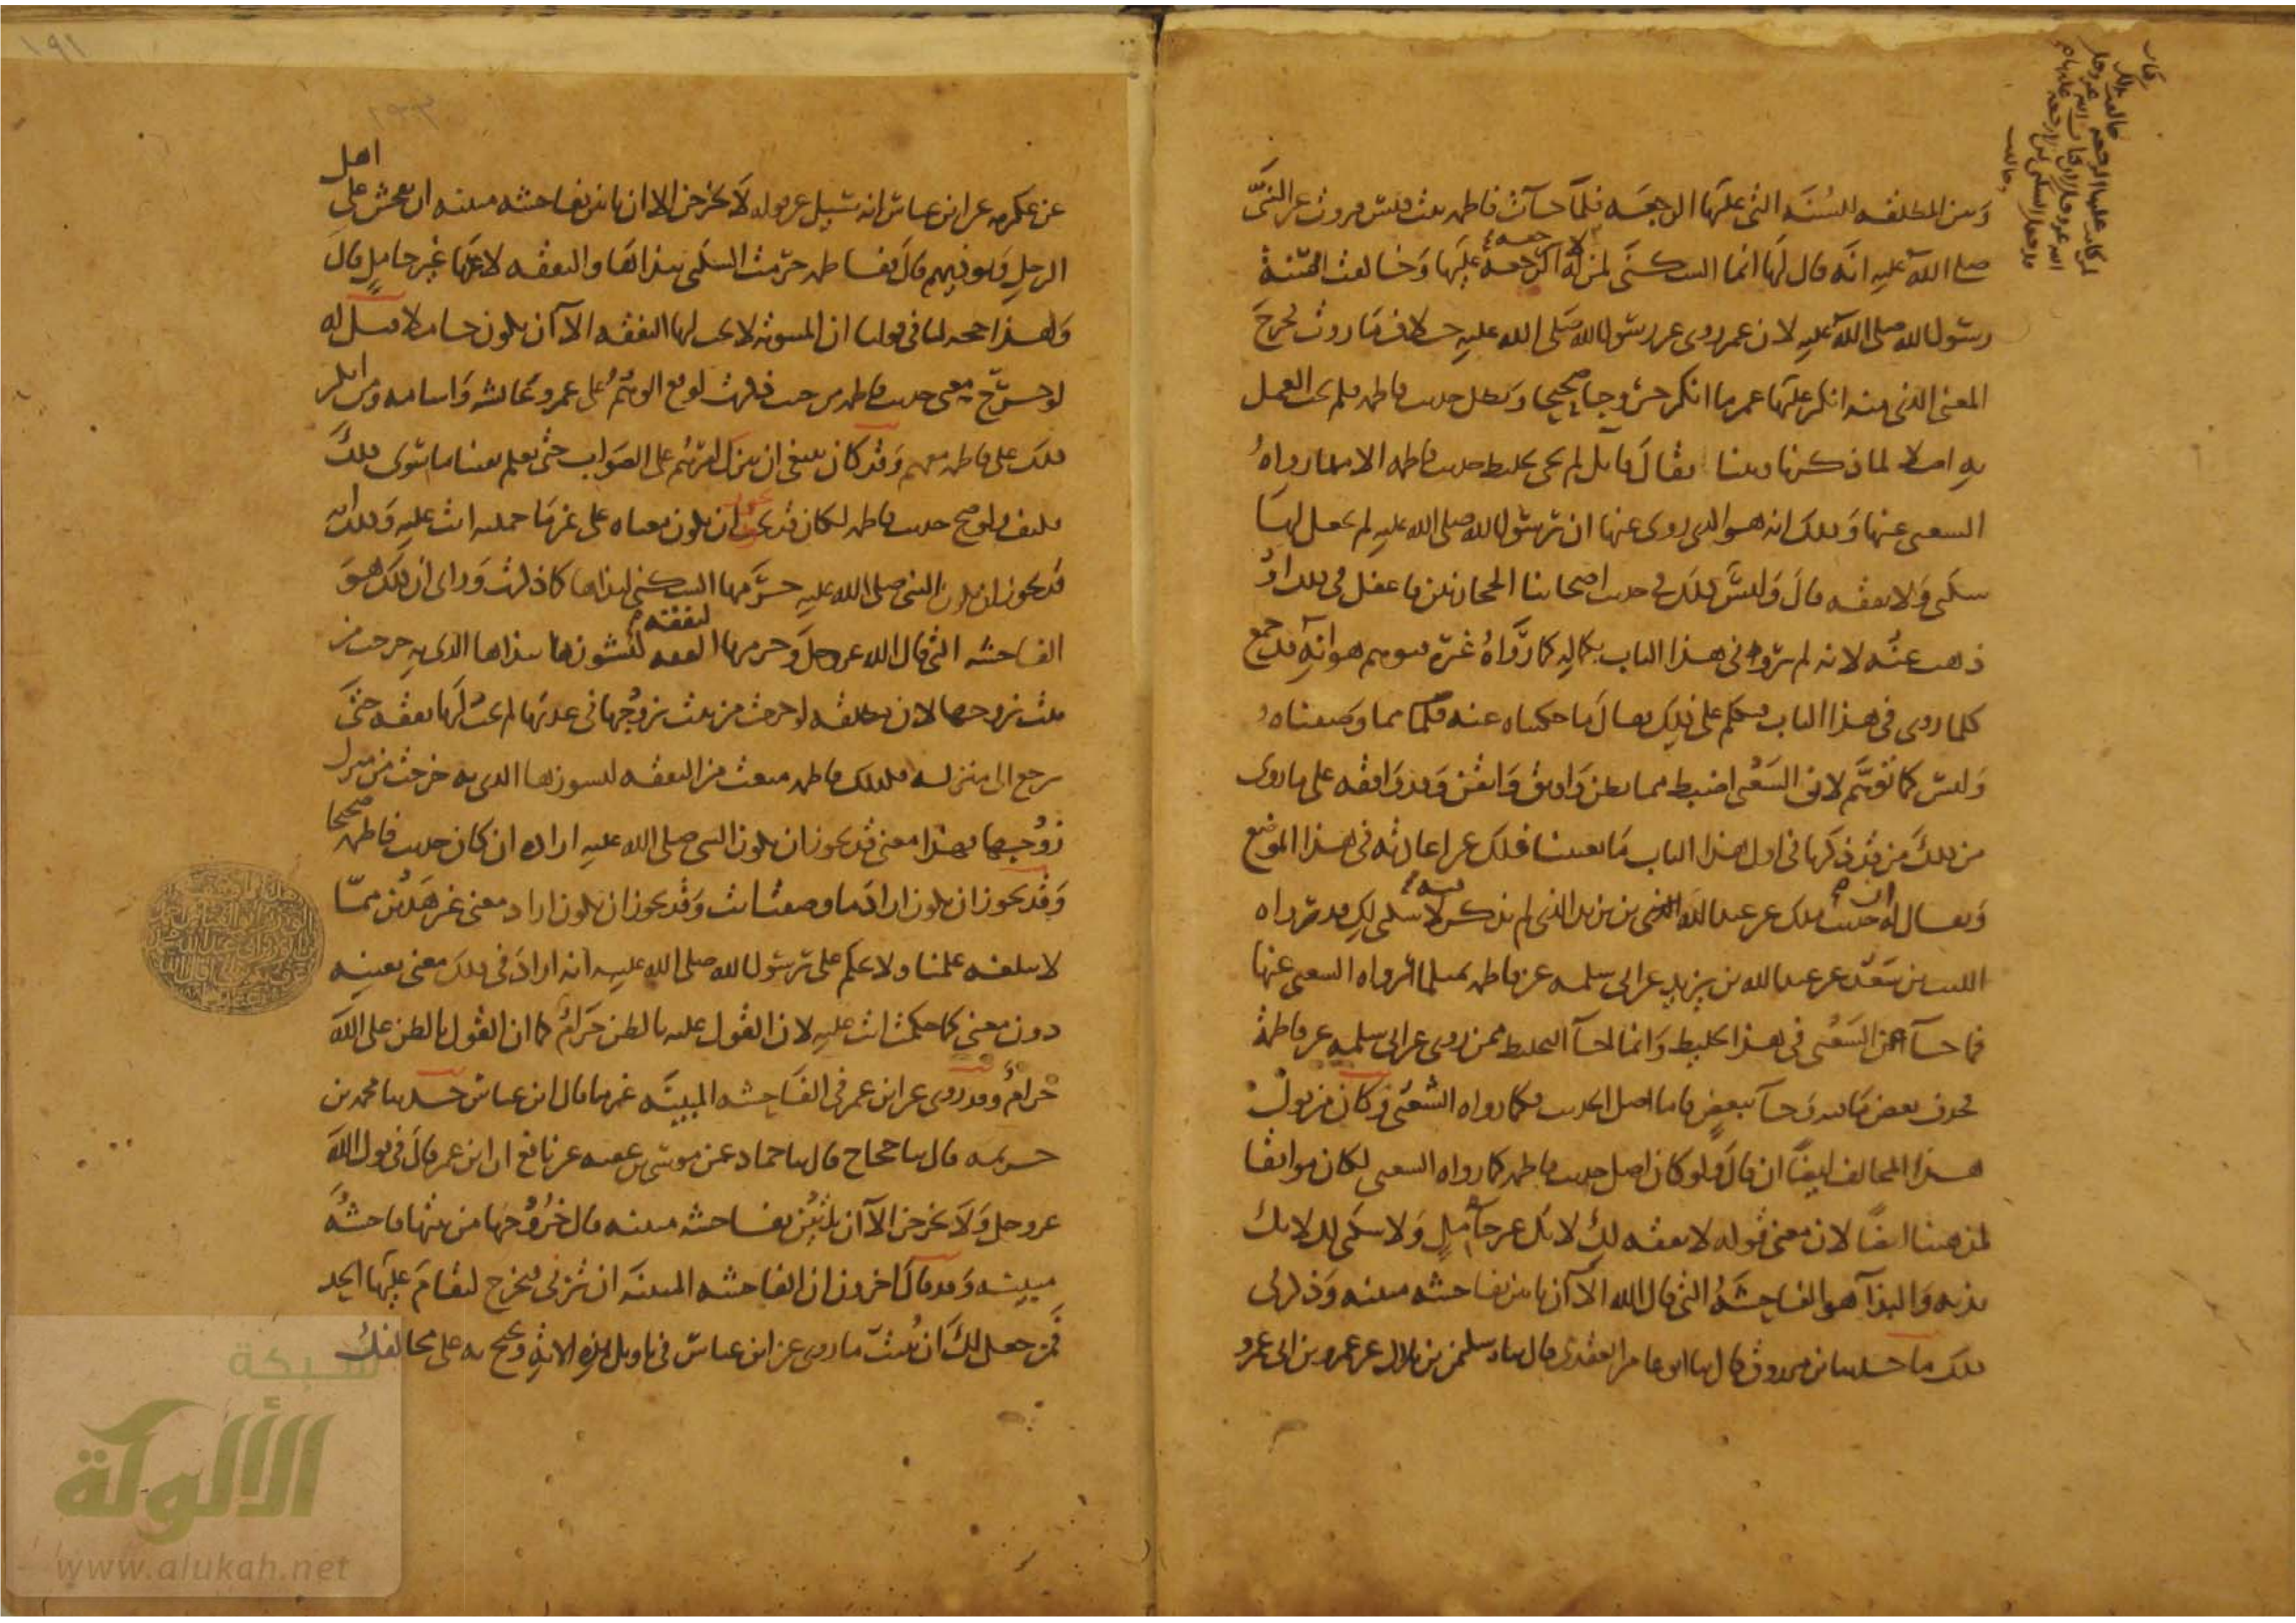 وبين المطلقة للسنة التي عليها الرجعة فلما جاءت فاطمة بنت قيس فروت عن النبي
صلى الله عليه أنه قال لها انما السكنى لمن له الرجعة عليها وخالفت السنة
رسول الله صلى الله عليه لان عمر روى عن رسول الله صلى الله عليه خلاف ما روت فخرج
المعنى الذي منه انكر عليها عمر ما انكر خروجا صحيحا وبطل حديث فاطمة فلم يجب العمل
به اصلا لما ذكرنا وبينا فقال قايل لم يجئ تخليط حديث فاطمة الا مما رواه
الشعبي عنها وذلك انه هو الذي روى عنها ان رسول الله صلى الله عليه لم يجعل لها
سكنى ولا نفقة قال وليس ذلك في حديث اصحابنا الحجازيين فاغفل في ذلك او
ذهب عنه لانه لم يرو ما في هذا الباب بكماله كما رواه غيره فتوهم هو انه قد جمع
كلما روى في هذا الباب فتكلم على ذلك فقال ما حكيناه عنه مما وصفناه
وليس كما توهم لان الشعبي اضبط مما يظن واوثق واتقن وقد وافقه على ما روى
من ذلك من قد ذكرنا في اول هذا الباب ما يغنينا ذلك عن اعادته في هذا الموضع
ويقال له ان حديث ملك عن عبد الله بن يزيد الذي لم يذكر فيه لا سكنى لك قد رواه
الليث بن سعد عن عبد الله بن يزيد عن ابي سلمة عن فاطمة بمثل ما رواه الشعبي عنها
فما جاء من الشعبي في هذا تخليط وانما جاء التخليط ممن روى عن ابي سلمة عن فاطمة
فحذف بعض ما فيه وجاء ببعض فاما اصل الحديث فكما رواه الشعبي وكان من قول
هذا المخالف ايضا ان قال ولو كان اصل حديث فاطمة كما رواه الشعبي لكان موافقا
لمذهبنا ايضا لان معنى قوله لا نفقة لك لانك غير حامل ولا سكنى لك لانك
بذية والبذاء هو الفاحشة التي قال الله الا ان ياتين بفاحشة مبينة وذكر في
ذلك ما حدثنا ابن مرزوق قال ثنا ابو عامر العقدي قال ثنا سليمن بن بلال عن عمرو بن ابي عمرو
عن عكرمة عن ابن عباس انه سئل عن قوله لا يخرجن الا ان ياتين بفاحشة مبينة ان تفحش على اهل
الرجل وتوذيهم قال ففاطمة حرمت السكنى ببذائها والنفقة لانها غير حامل قال
وهذا حجة لنا في قولنا ان المبتوتة لا يجب لها النفقة الا ان تكون حاملا قيل له
لو خرج معنى حديث فاطمة من حيث ذكرت لوقع الوهم على عمر وعائشة واسامة ومن انكر
ذلك على فاطمة معهم وقد كان ينبغي ان يترك امرهم على الصواب حتى يعلم يقينا ما سوى ذلك
فكيف ولو صح حديث فاطمة لكان قد يجوز ان يكون معناه على غير ما حملته انت عليه وذلك انه
قد يجوز ان يكون النبي صلى الله عليه حرمها السكنى لبذائها كما ذكرت وراى ان ذلك هو
الفاحشة التي قال الله عز وجل وحرمها النفقة لنشوزها ببذائها الذي به خرجت من
بيت زوجها لان المطلقة لو خرجت من بيت زوجها في عدتها لم يجب لها نفقة حتى
يرجع الى منزله فكذلك فاطمة منعت من النفقة لنشوزها الذي به خرجت من منزل
زوجها فهذا معنى قد يجوز ان يكون النبي صلى الله عليه اراده ان كان حديث فاطمة صحيحا
وقد يجوز ان يكون اراد ما وصفت انت وقد يجوز ان يكون اراد معنى غير هذين مما
لا يبلغه علمنا ولا يحكم على رسول الله صلى الله عليه انه اراد في ذلك معنى بعينه
دون معنى كما حكمت انت عليه لان القول عليه بالظن حرام كما ان القول بالظن على الله
حرام وقد روى عن ابن عمر في الفاحشة المبينة غير ما قال ابن عباس حدثنا محمد بن
خزيمة قال ثنا حجاج قال ثنا حماد عن موسى بن عقبة عن نافع ان ابن عمر قال في قول الله
عز وجل ولا يخرجن الا ان ياتين بفاحشة مبينة قال خروجها من بيتها فاحشة
مبينة وقد قال اخرون ان الفاحشة المبينة ان تزني فتخرج ليقام عليها الحد
فمن جعل لك ان تثبت ما روى عن ابن عباس في تاويل هذه الاية وتحتج به على مخالفك
شبكة
الألوكة
www.alukah.net